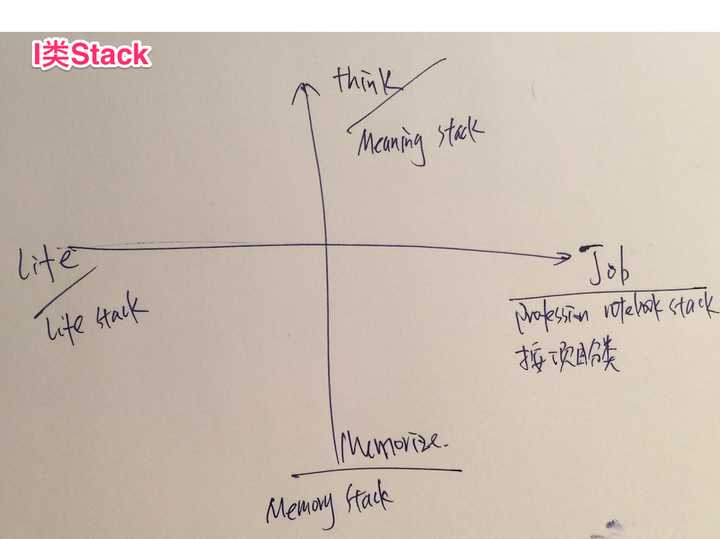 I类Stack
think
Meaning stack
Life
Life stack
Job
profession notebook stack
按项目分类
Memorize.
Memory Stack